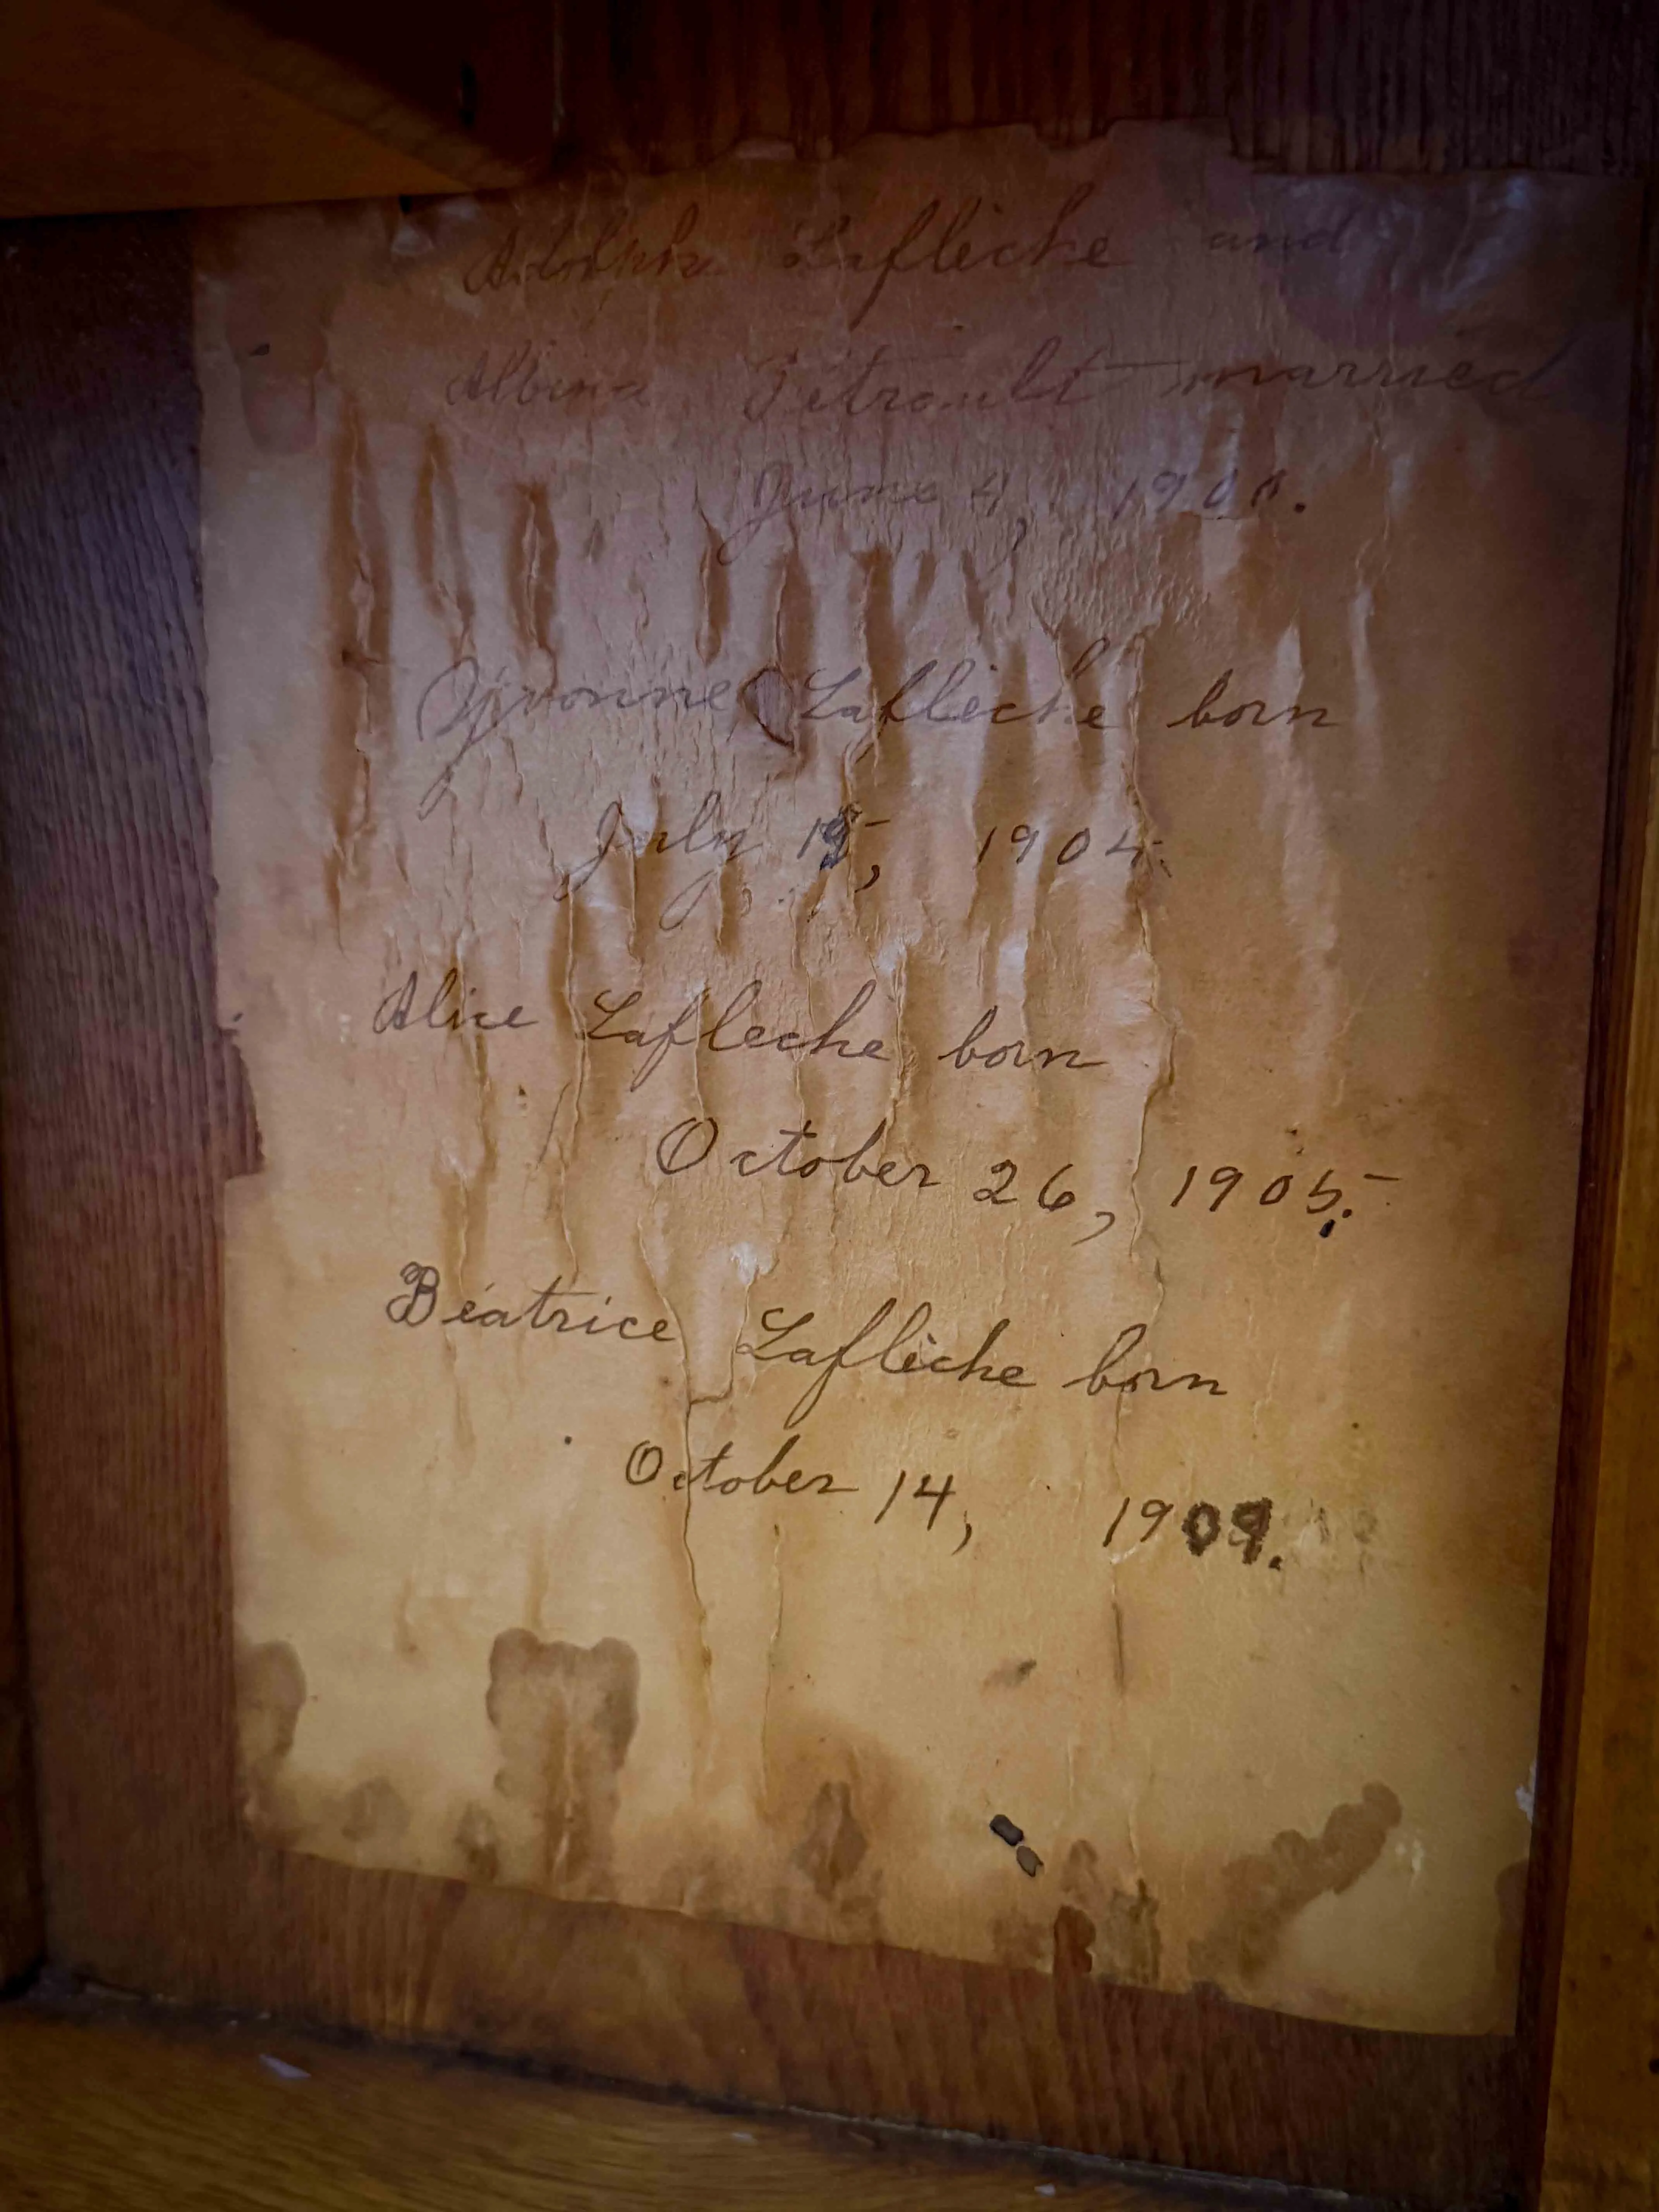 Adolph Laflèche and
Albina Tétrault married
June 4,
Yvonne Laflèche born
July 15, 1904.
Alice Lafleche born
October 26, 1905.
Béatrice Laflèche born
October 14, 1909.